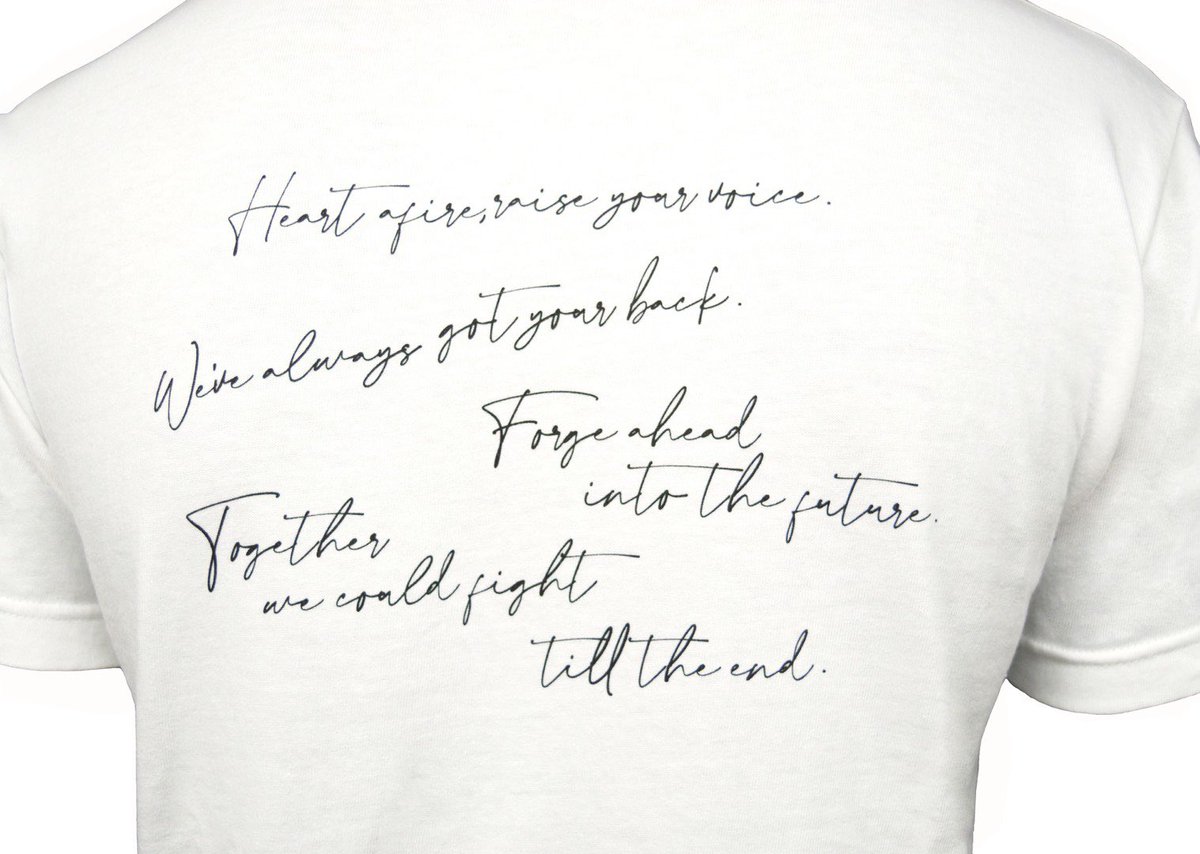 Heart afire,raise your voice.
We've always got your back.
Forge ahead
into the future.
Together
we could fight
till the end.